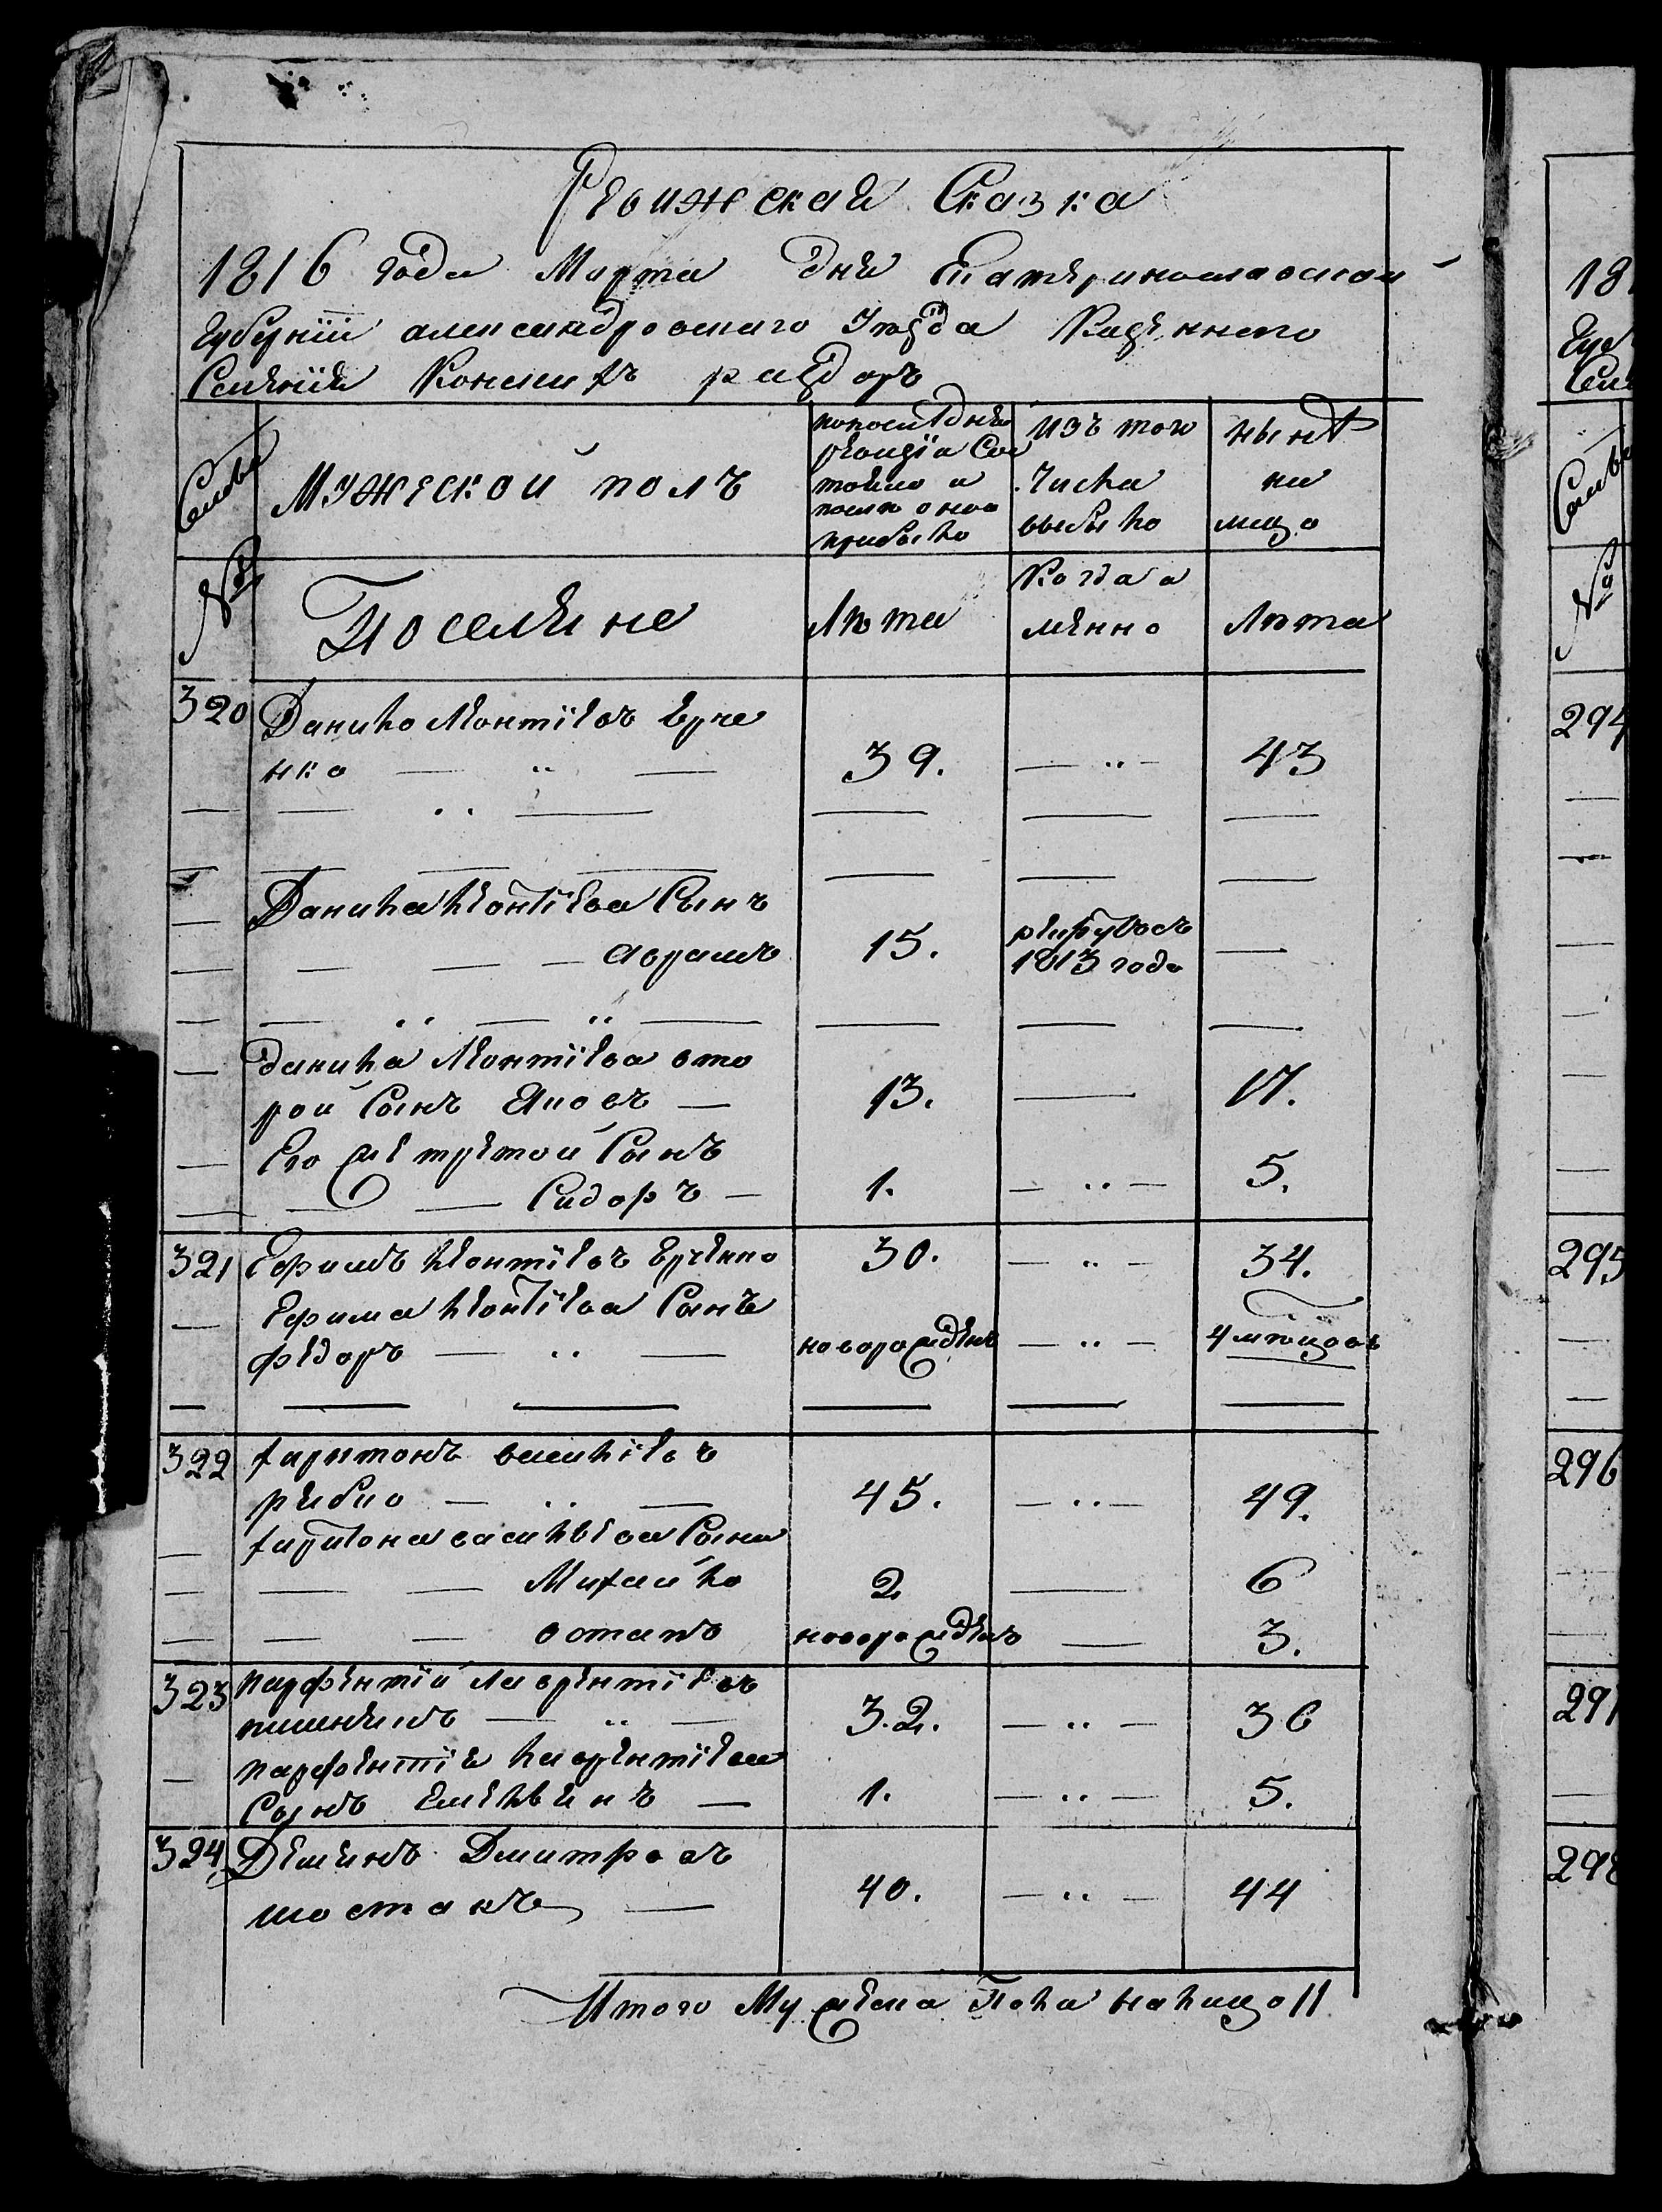 Ревижская Сказка
1816 года Марта дня Екатеринославской
Губернии александровского Уезда Казенного
Селения Конских раздор
Семьи
Мужеской полъ
попоследней
ревизiи Сос
тояло и
после оной
прибыло
изъ того
Числа
выбыло
нынѣ
на
лицо
№
Поселяне
Лѣта
Когда и
менно
Лѣта
320 Данило Леонтiевъ Ерче
нко 39. 43
Данила Леонтiева Сынъ
аврамъ 15. рекрутъ
1813 года
Данила Леонтiева вто
рой Сынъ Яковъ 13. 17.
Его же третой Сынъ
Сидоръ 1. 5.
321 Ефимъ Леонтiевъ Ерченко 30. 34.
Ефима Леонтiева Сынъ
федоръ новорожденъ 4 мѣсяцовъ
322 харитонъ василiевъ
рибко 45. 49.
харитона васильева Сыны
Михайло 2 6
остапъ новорожденъ 3.
323 парфентiй лаврентiевъ
32. 36
парфентiя лаврентiева
Сынъ Емельянъ 1. 5.
324 Демянъ Дмитровъ
шостакъ 40. 44
Итого Мужеска Пола налицо 11
18
Губ
Сел
Семьи
№
294
295
296
297
298